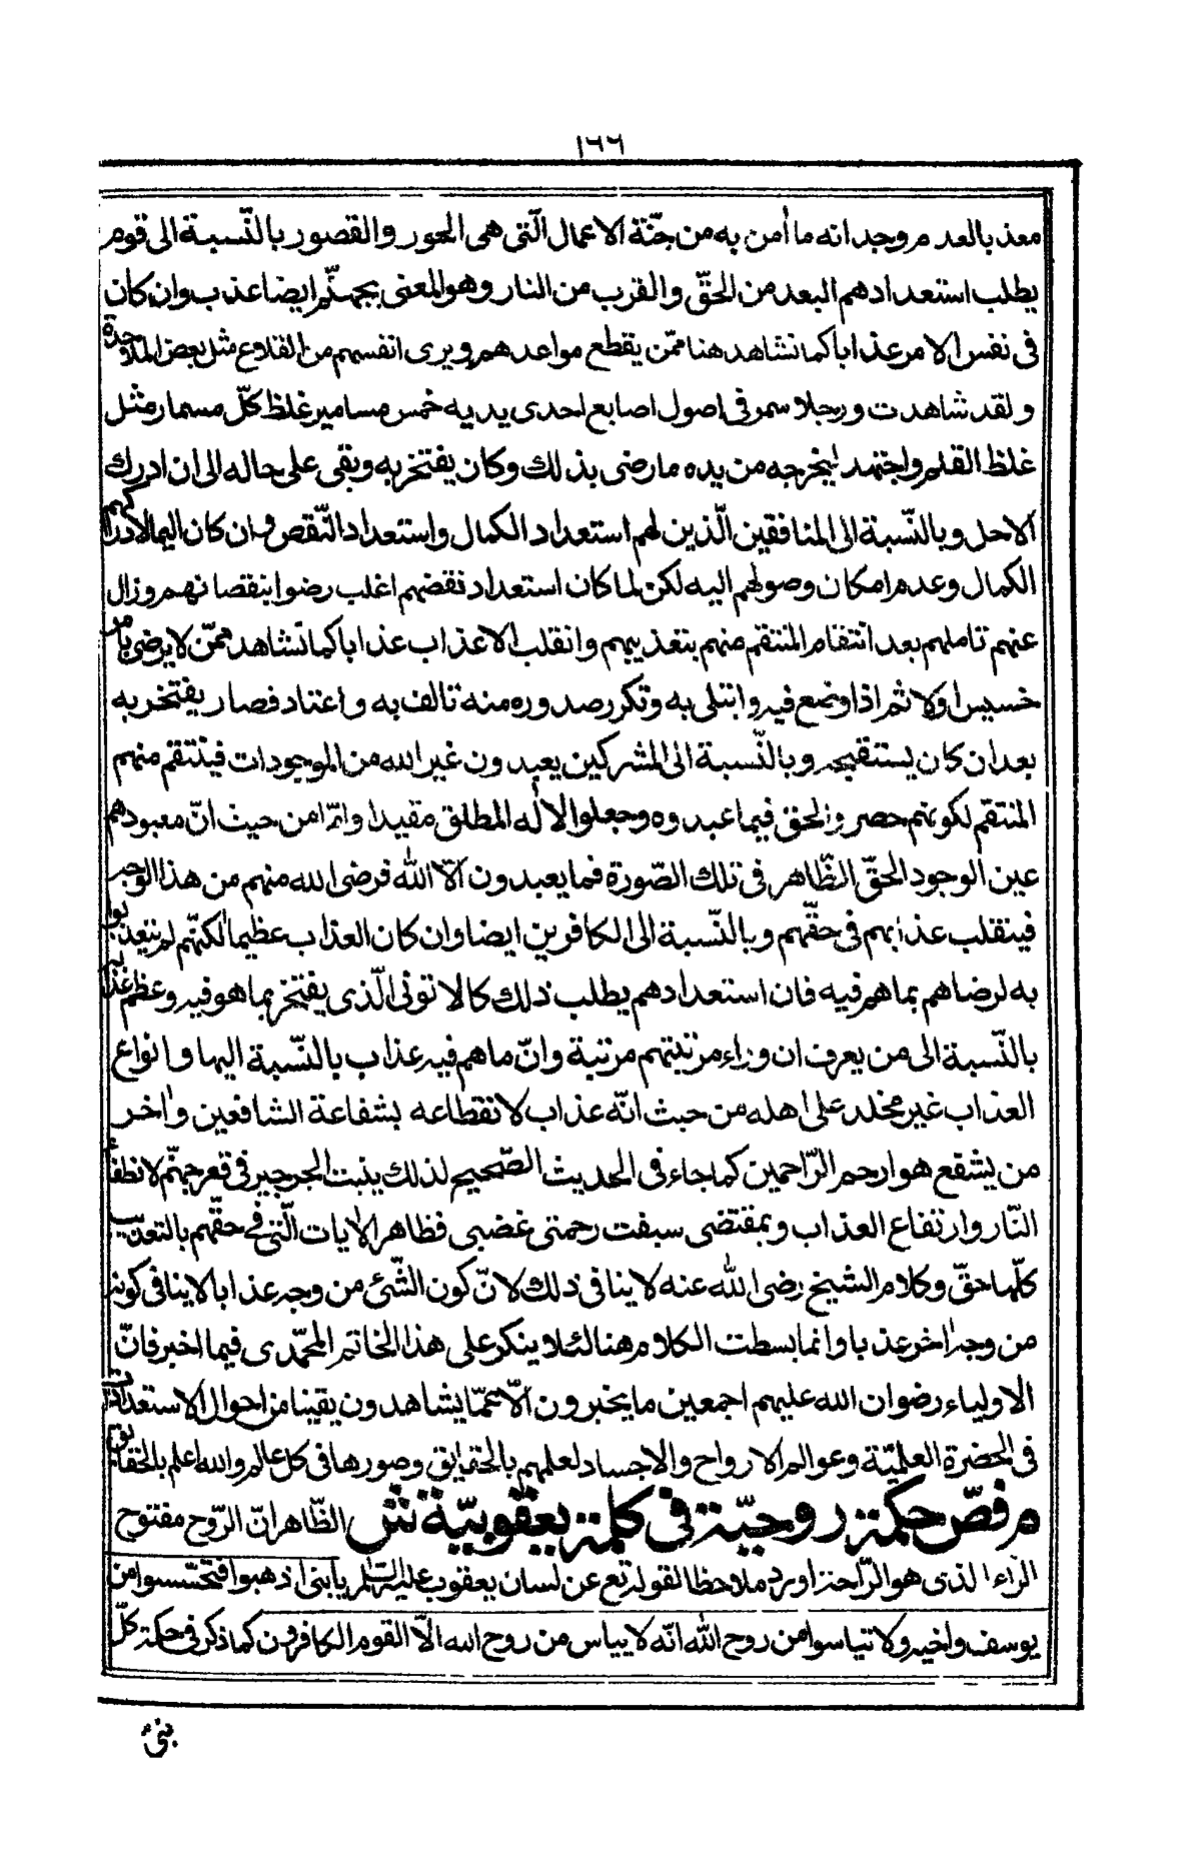 ١٦٦
معذبا لعدم وجدانه ما أمن به من جنّة الاعمال الّتى هى الحور والقصور بالنّسبة الى قوم
يطلب استعدادهم البعد من الحقّ والقرب من النار وهو المعنى بجهنّم ايضا عذب وان كان
فى نفس الامر عذابا كما نشاهد هنا ممّن يقطع سواعدهم ويرمى انفسهم من القلاع مثل بعض الملاحدة
ولقد شاهدت ورجلا سمر فى اصول اصابع احدى يديه خمس مسامير غلظ كلّ مسمار مثل
غلظ القلم واجتهد ليخرجه من يده ما رضى بذلك وكان يفتخر به وبقى على حاله الى ان ادركه
الاجل وبالنّسبة الى المنافقين الّذين لهم استعداد الكمال واستعداد النّقص وان كان اليما لادراكهم
الكمال وعدم امكان وصولهم اليه لكن لما كان استعداد نقضهم اغلب رضوا بنقصانهم وزال
عنهم تاملهم بعد انتقام المنتقم منهم بتعذيبهم وانقلب الاعذاب عذابا كما نشاهد ممّن لا يرضى بامر
خسيس اولا ثم اذا وضع فيه وابتلى به وتكرر صدوره منه تالف به واعتاد فصار يفتخر به
بعد ان كان يستقبحه وبالنّسبة الى المشركين يعبدون غير الله من الموجودات فينتقم منهم
المنتقم لكونهم حصروا الحق فيما عبدوه وجعلوا الاله المطلق مقيدا وامّا من حيث انّ معبودهم
عين الوجود الحقّ الظّاهر فى تلك الصّورة فما يعبدون الّا الله فرضى الله منهم من هذا الوجه
فينقلب عذابهم فى حقّهم وبالنّسبة الى الكافرين ايضا وان كان العذاب عظيما لكنّهم لم يتعذبوا
به لرضاهم بما هم فيه فان استعدادهم يطلب ذلك كالاتونى الّذى يفتخر بما هو فيه وعظم عذابه
بالنّسبة الى من يعرف ان وراء مرتبتهم مرتبة وانّ ما هم فيه عذاب بالنّسبة اليها وانواع
العذاب غير مخلد على اهله من حيث انّه عذاب لانقطاعه بشفاعة الشافعين واخر
من يشفع هو ارحم الرّاحمين كما جاء فى الحديث الصّحيح لذلك ينبت الجرجير فى قعر جهنّم لانطفاء
النّار وارتفاع العذاب وبمقتضى سبقت رحمتى غضبى فظاهر الايات الّتى فى حقّهم بالتعذيب
كلّها حقّ وكلام الشيخ رضى الله عنه لا ينافى ذلك لانّ كون الشّئ من وجه عذابا لا ينافى كونه
من وجه اخر عذبا وانما بسطت الكلام هنا لئلا ينكر على هذا الخاتم المحمّدى فيما اخبر فانّ
الاولياء رضوان الله عليهم اجمعين ما يخبرون الّا عمّا يشاهدون يقينا من احوال الاستعدادات
فى الحضرة العلميّة وعوالم الارواح والاجساد لعلمهم بالحقايق وصورها فى كل عالم والله اعلم بالحقايق
م فصّ حكمة روحيّة فى كلمة يعقوبيّة ش الظّاهر انّ الرّوح مفتوح
الراء الذى هو الرّاحة اورد ملاحظا لقوله تع عن لسان يعقوب عليه السّلم يا بنى اذهبوا فتحسّسوا من
يوسف واخيه ولا تياسوا من روح الله انّه لا يياس من روح الله الّا القوم الكافرون كما ذكر فى حكمة كلّ
بنى